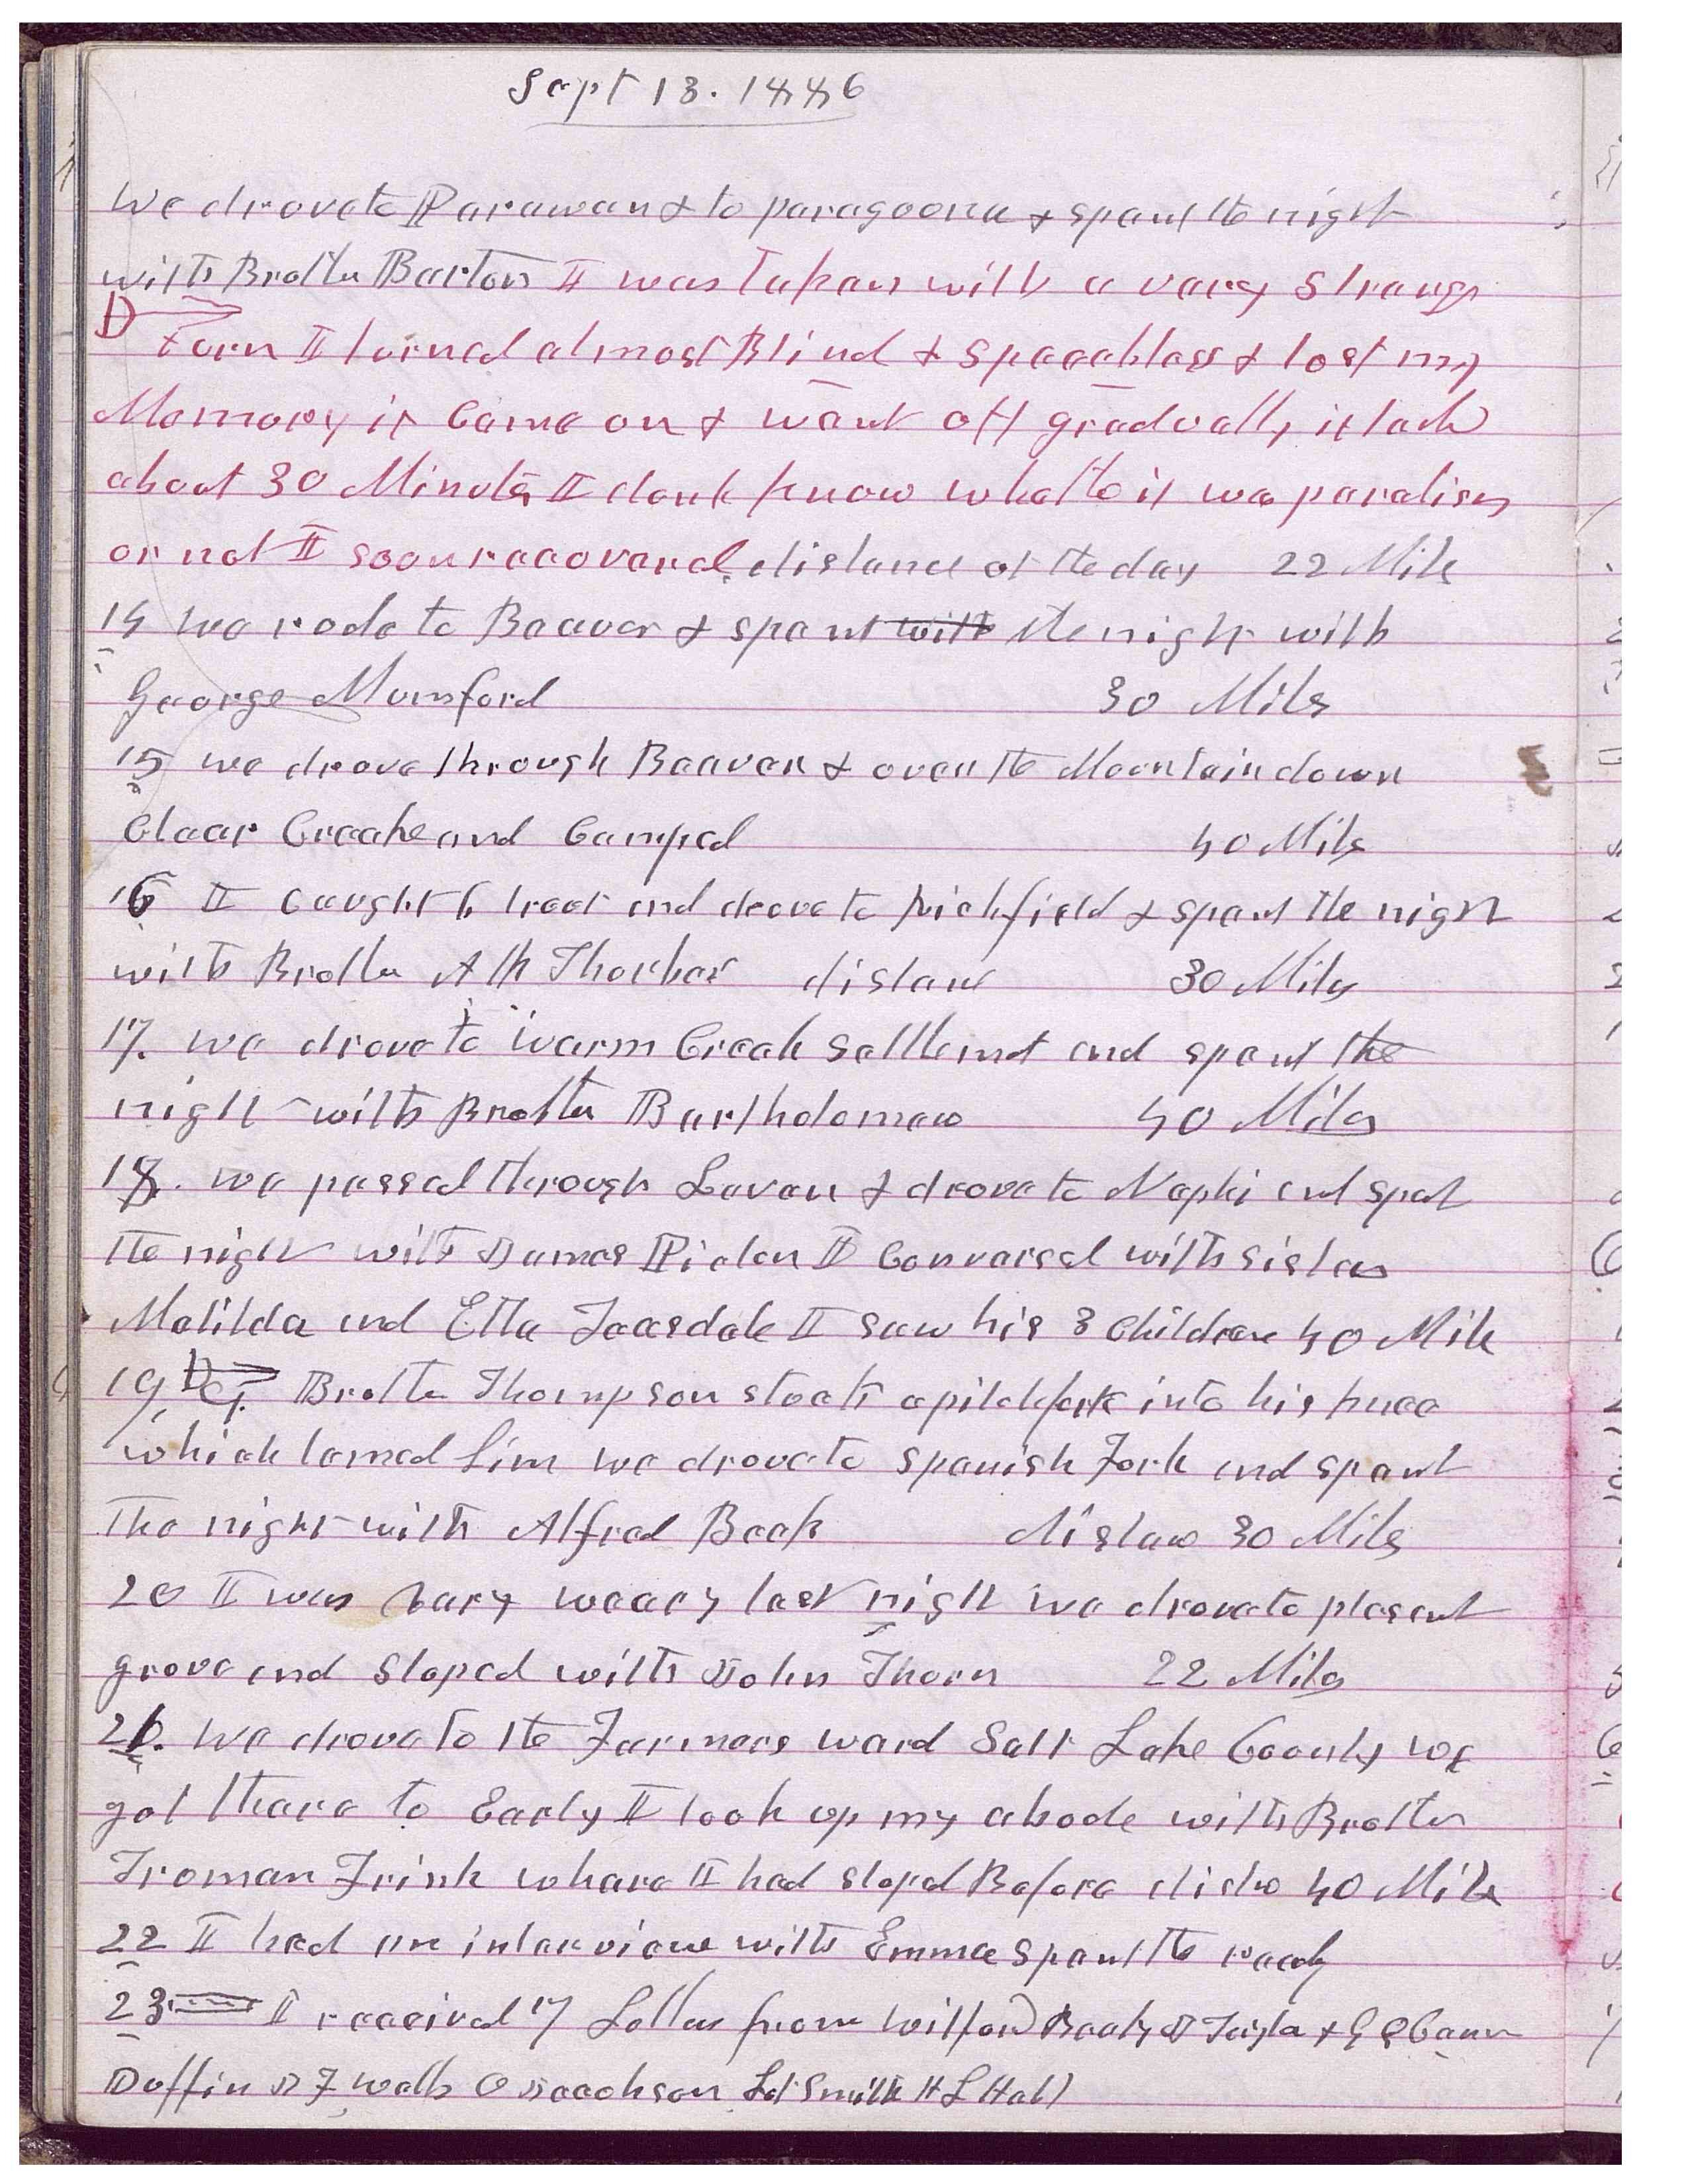 Sept 13. 1886
We drove to Parawan & to paragoona & spent the night
with Brother Barton I was taken with a very strange
turn I turned almost Blind & speechless & lost my
Memory it Came on & went off gradually it lasted
about 30 Minutes I dont know whether it was paralises
or not I soon recovered. distance of the day 22 Mile
14 we rode to Beaver & spent with the night with
George Mumford 30 Miles
15 we drove through Beaver & over the Mountain down
Clear Creek and Camped 40 Miles
16 I caught 6 trout and drove to Richfield & spent the night
with Brother A K Thurber distance 30 Miles
17. we drove to Warm Creek Settlement and spent the
night with Brother Bartholomew 40 Miles
18. we passed through Levan & drove to Nephi and spent
the night with James Pidon I Conversed with sisters
Matilda and Etta Teasdale I saw his 3 Children 40 Mile
19, Brother Thompson stuck a pitchfork into his knee
which lamed him we drove to Spanish Fork and spent
The night with Alfred Beck distance 30 Miles
20 I was vary weary last night we drove to plesent
grove and stoped with John Thorn 22 Miles
21. We drove to the Farmers ward Salt Lake County we
got there to Early I took up my abode with Brother
Froman Frink where I had stoped Before distance 40 Miles
22 I had an interview with Emma spent the
23 I received 17 Letters from Wilford Beaty J Taylor & G Q Cannon
Duffin J F Wells O Jacobson Lot Smith H L Hall